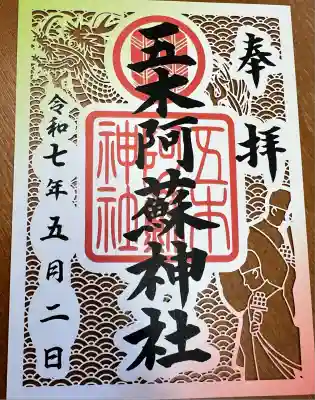 奉拝
五木阿蘇神社
五木阿蘇神社
令和七年五月二日